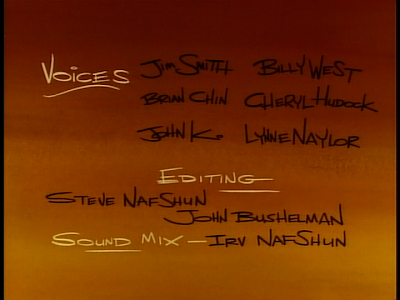 Voices Jim Smith Billy West
Brian Chin Cheryl Hudock
John K. Lynne Naylor
Editing
Steve Nafshun
John Bushelman
Sound Mix – Irv Nafshun